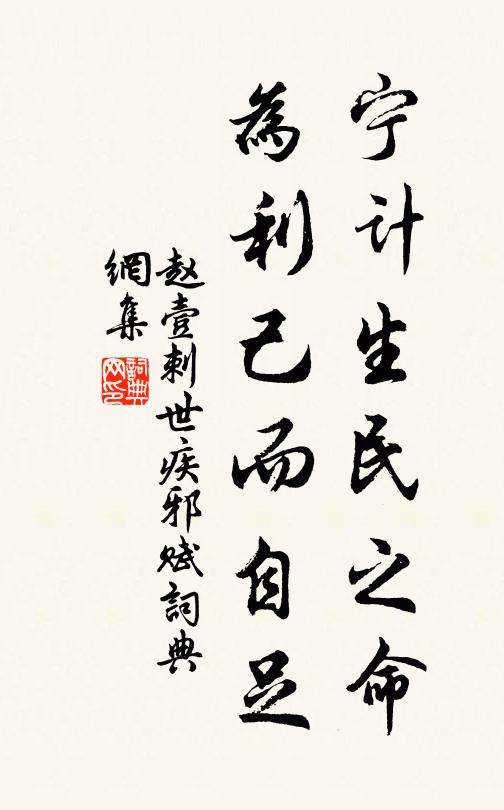 宁计生民之命
為利己而自足
赵壹刺世疾邪赋詞典
網集
詞典
网印